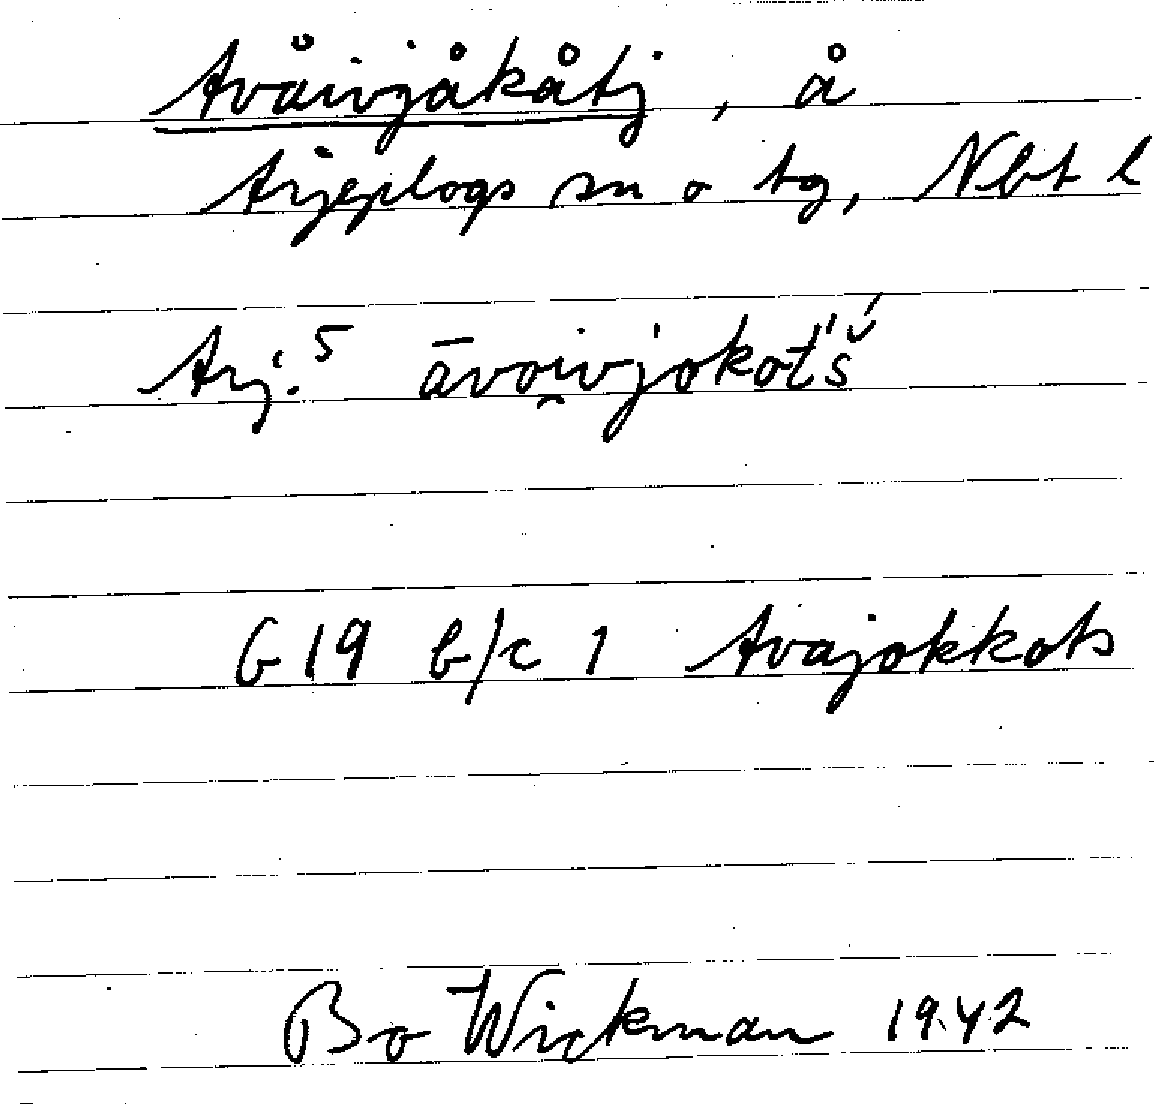 Avåivjåkåtj, å
Arjeplogs sn o tg, Nbt l
Arj. 5 āvoi̯vjokot́'š́
G 19 b/c 1 Avajokkots
Bo Wickman 1942